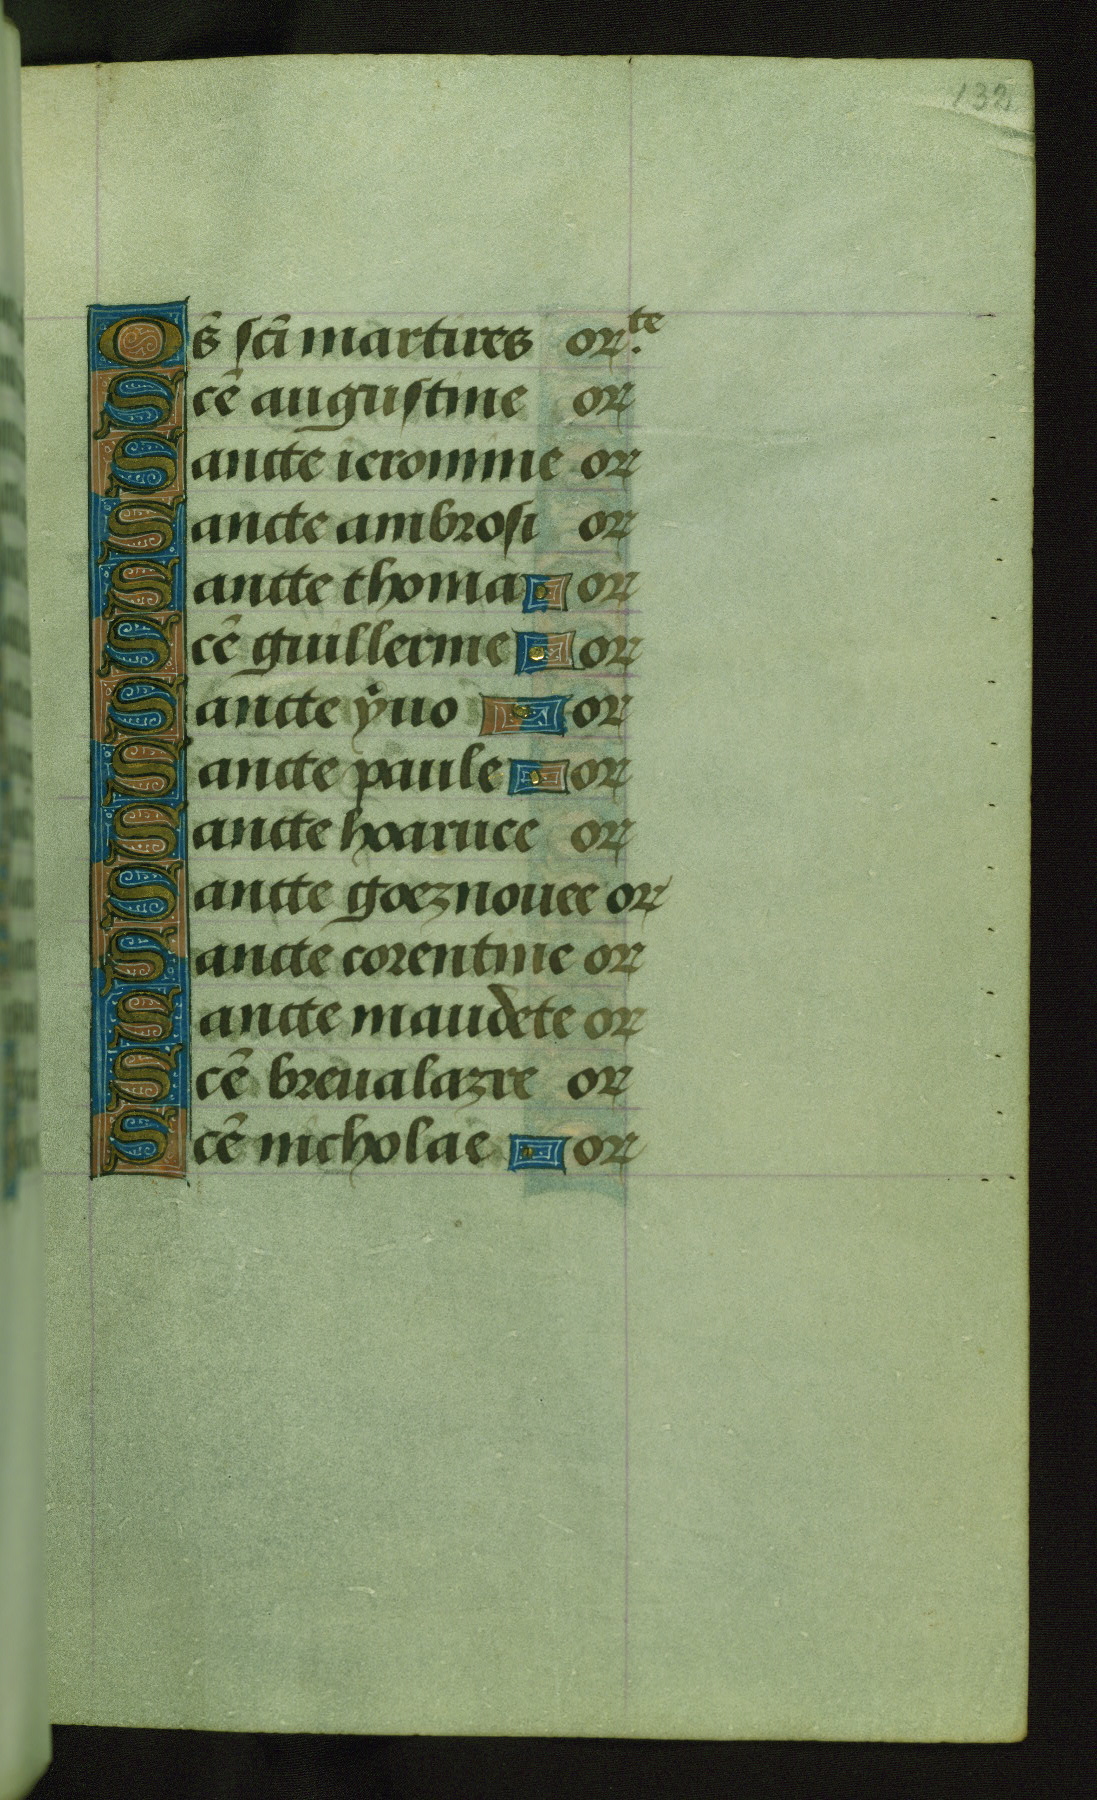 132
Os̄ scī martires or.te
Scē augustine or
Sancte ieronime or
Sancte ambrosi or
Sancte thoma or
Scē guillerme or
Sancte yuo or
Sancte paule or
Sancte hoaruee or
Sancte goeznouee or
Sancte corentine or
Sancte maudete or
Scē breualazre or
Scē nicholae or